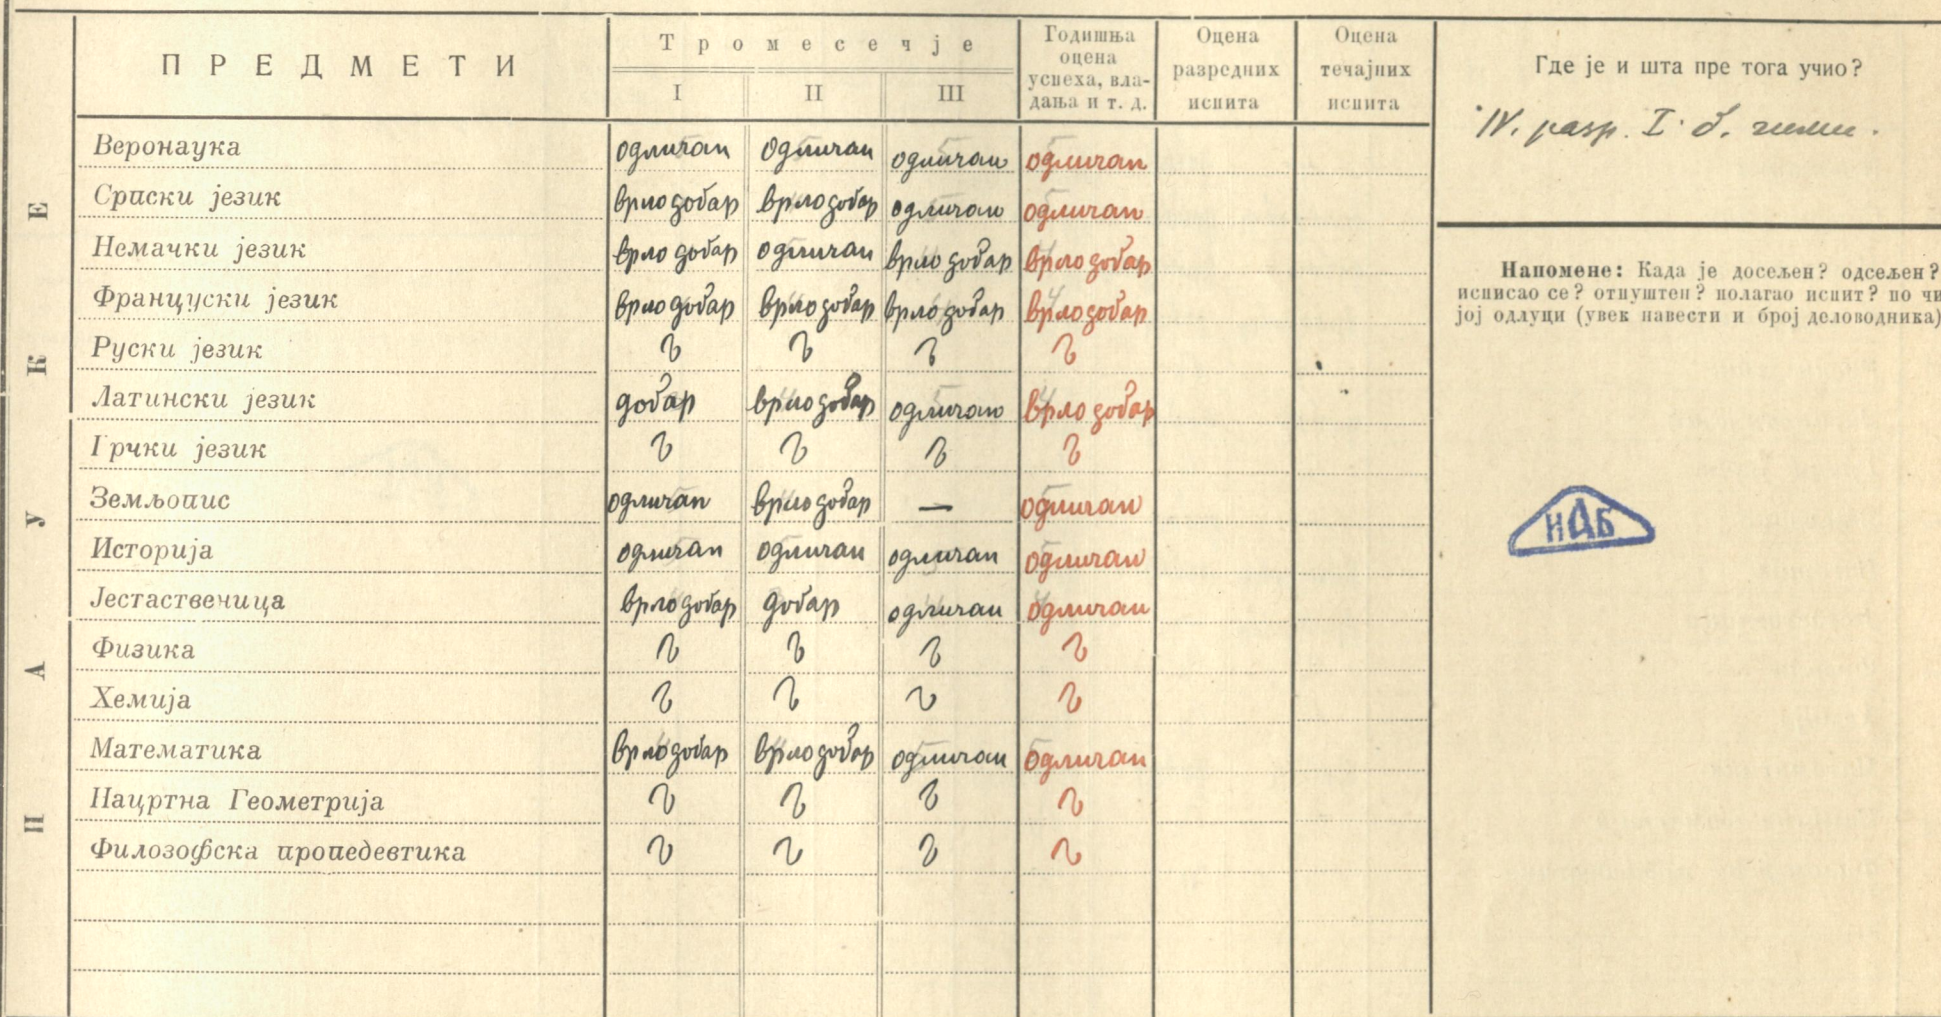 ПРЕДМЕТИ
Тромесечје
I II III
Годишња оцена успеха, вла-дања и т. д.
Оцена разредних испита
Оцена течајних испита
Где је и шта пре тога учио?
IV. разр. I. б. гимн.
НАУКЕ
Веронаука одличан одличан одличан одличан
Српски језик врло добар врло добар одличан одличан
Немачки језик врло добар одличан врло добар врло добар
Француски језик врло добар врло добар врло добар врло добар
Руски језик
Латински језик добар врло добар одличан врло добар
Грчки језик
Земљопис одличан врло добар — одличан
Историја одличан одличан одличан одличан
Јестаственица врло добар добар одличан одличан
Физика
Хемија
Математика врло добар врло добар одличан одличан
Нацртна Геометрија
Филозофска пропедевтика
Напомене: Када је досељен? одсељен?
исписао се? отпуштен? полагао испит? по чи
јој одлуци (увек навести и број деловодника)
ИАБ